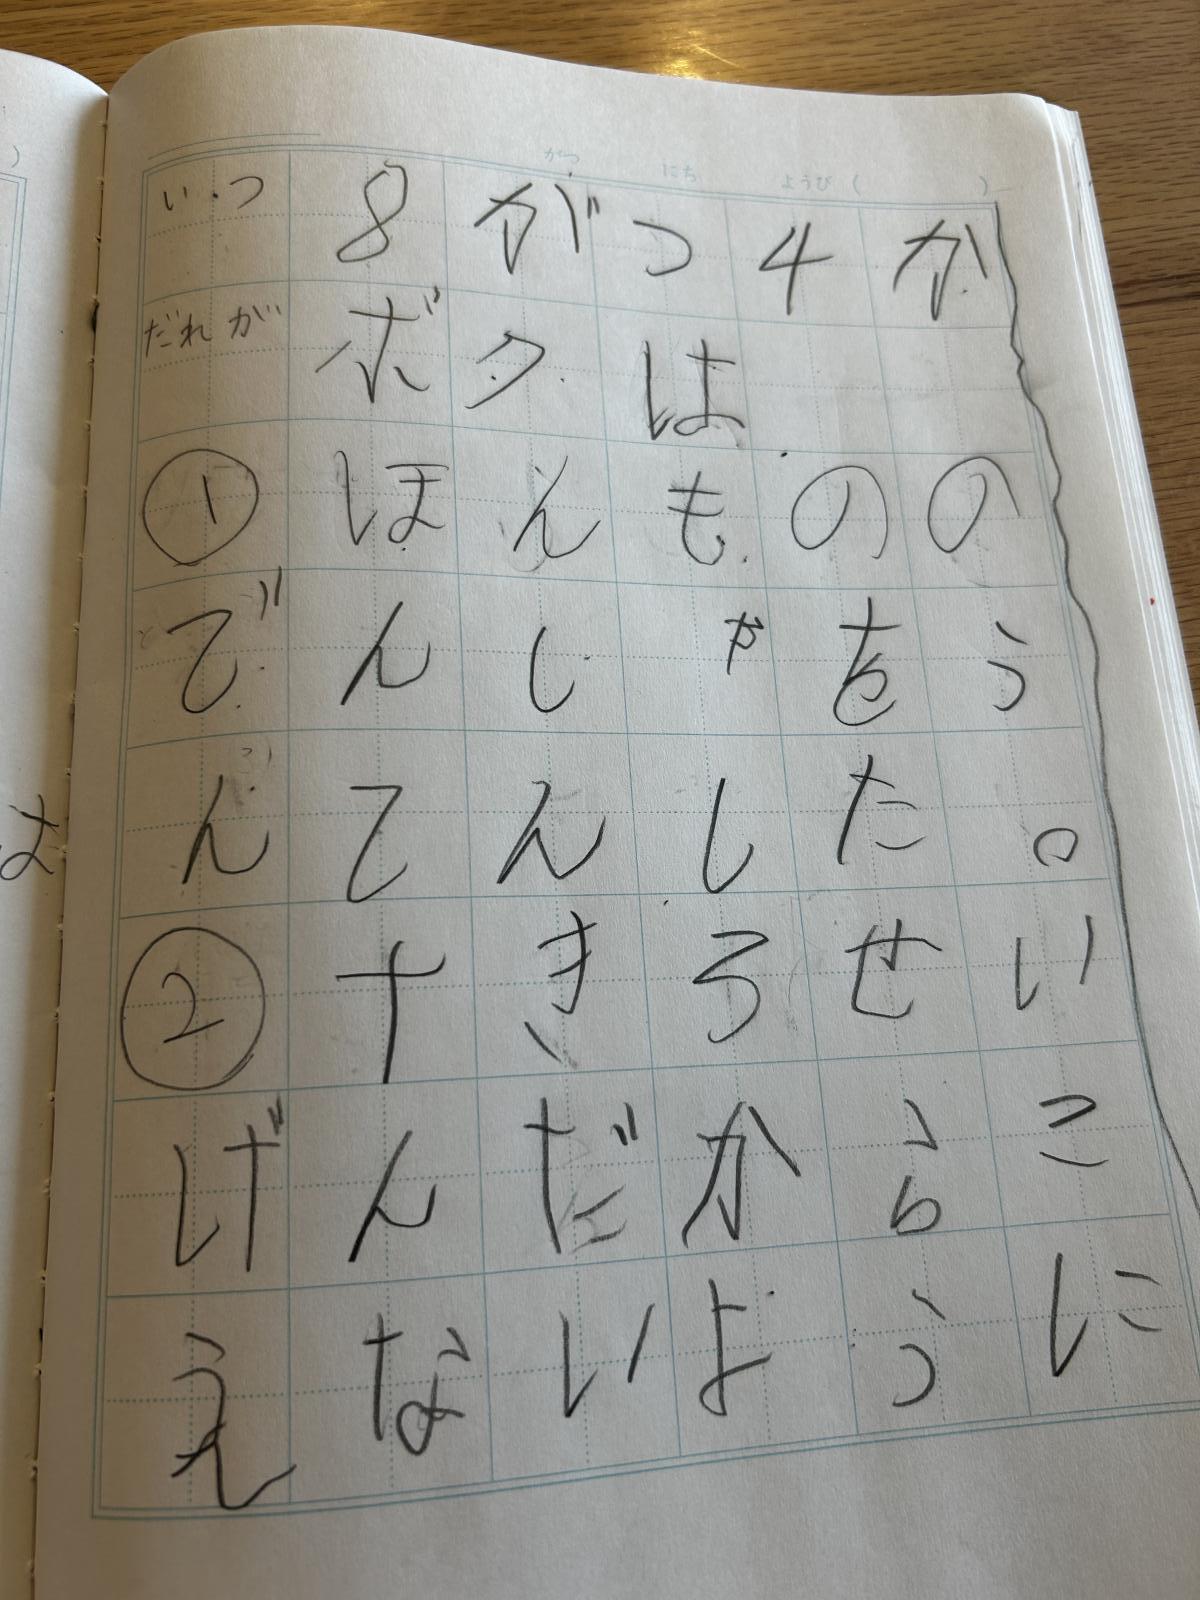 がつ にち ようび ( )
いつ 8がつ4か
だれが ボクは
① ほんものの
でんしゃをう
んてんした。
② すきろせい
げんだからこ
えないように
は